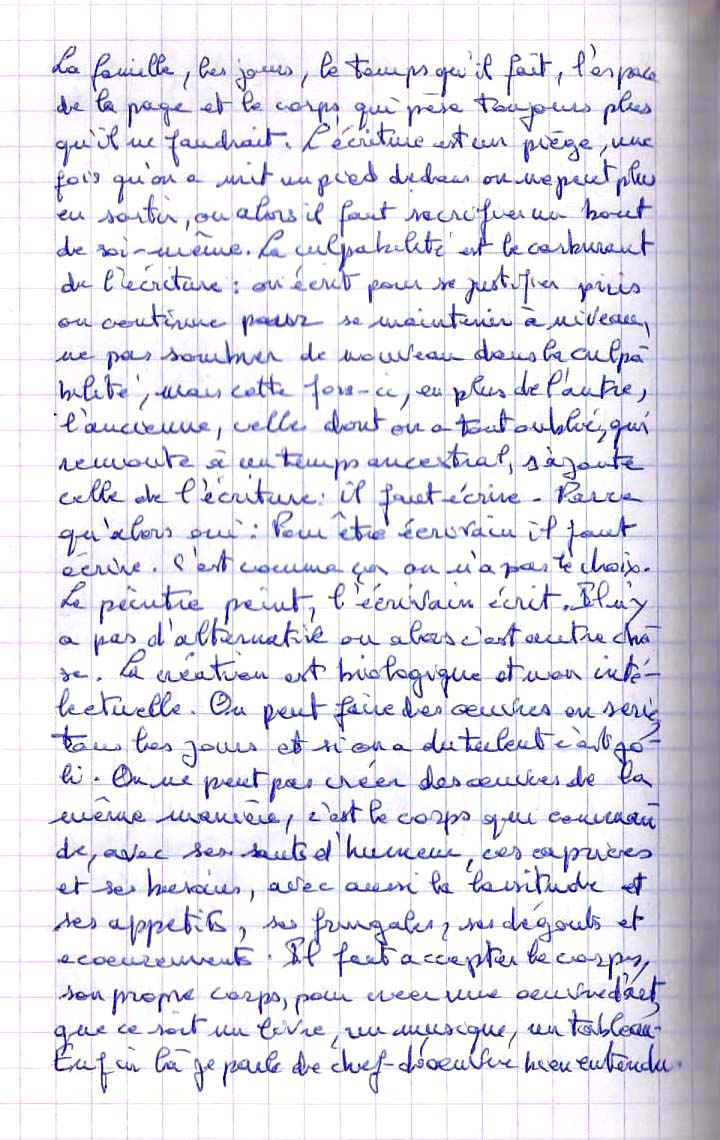 La famille, les jours, le temps qu'il fait, l'espace
de la page et le corps qui pèse toujours plus
qu'il ne faudrait. L'écriture est un piège, une
fois qu'on a mit un pied dedans on ne peut plus
en sortir, ou alors il faut sacrifier un bout
de soi-même. La culpabilité est le carburant
de l'écriture : on écrit pour se justifier puis
on continue pour se maintenir à niveau,
ne pas sombrer de nouveau dans la culpa
bilité, mais cette fois-ci, en plus de l'autre,
l'ancienne, celle dont on a tout oublié, qui
remonte à un temps ancestral, s'ajoute
celle de l'écriture : il faut écrire. Parce
qu'alors oui : Pour être écrivain il faut
écrire. C'est comme ça on n'a pas le choix.
Le peintre peint, l'écrivain écrit. Il n'y
a pas d'alternative ou alors c'est autre cho
se. La création est biologique et non inté-
lectuelle. On peut faire des oeuvres en série
tous les jours et si on a du talent c'est jo-
li. On ne peut pas créer des oeuvres de la
même manière, c'est le corps qui comman
de, avec ses sauts d'humeur, ces caprices
et ses besoins, avec aussi la lassitude et
ses appétits, ses fringales, ses dégouts et
écoeurements. Il faut accepter le corps,
son propre corps, pour créer une oeuvre d'art,
que ce soit un livre, un musique, un tableau.
Enfin là je parle de chef-d'oeuvre bien entendu.